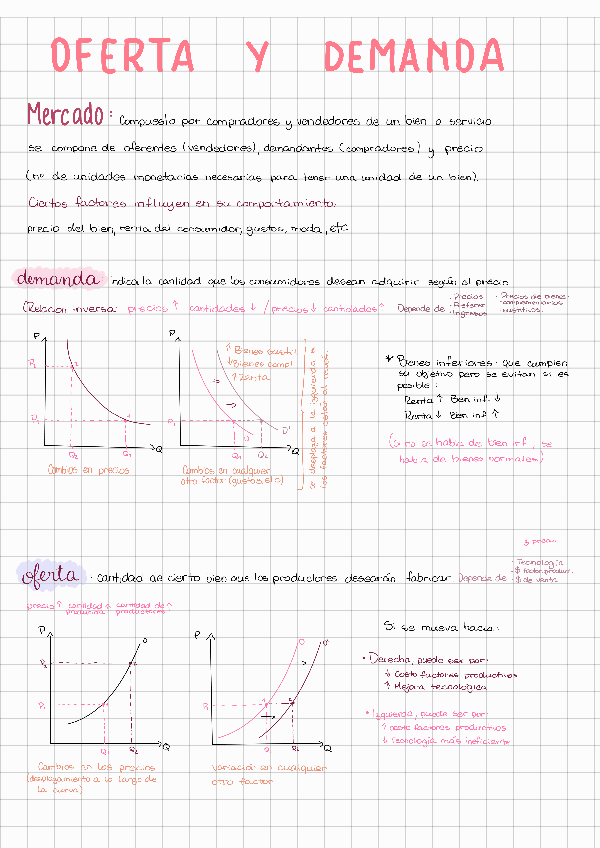 OFERTA Y DEMANDA
Mercado: Compuesto por compradores y vendedores de un bien o servicio
se compone de oferentes (vendedores), demandantes (compradores) y precio
(nº de unidades monetarias necesarias para tener una unidad de un bien).
Ciertos factores influyen en su comportamiento.
precio del bien, renta del consumidor, gustos, moda, etc
demanda indica la cantidad que los consumidores desean adquirir según el precio
(Relacion inversa: precios ↑ cantidades ↓ / precios ↓ cantidades ↑ Depende de
· Precios
· Preferen
· Ingresos
· Precios de bienes
complementarios
sustitivos.
P
P₂
P₁
Q₂ Q₁ Q
Cambios en precios
P
P₁
↑ Bienes sustit
↓ Bienes compl
↑ Renta
D D'
Q₁ Q₂ Q
Cambios en cualquier
otro factor (gustos, etc)
se desplaza a la izquierda si
los factores están al revés.
* Bienes inferiores: que cumplen
su objetivo pero se evitan si es
posible:
Renta ↑ Bien inf. ↓
Renta ↓ Bien inf ↑
(si no se habla de bien inf., se
habla de bienes normales)
oferta · cantidad de cierto bien que los productores desearán fabricar Depende de
· $ produc.
· Tecnología
· $ factor produc.
· $ de venta
precio ↑ cantidad ↑ cantidad de ↑
producida productores
P
P₂
P₁
O
Q₁ Q₂ Q
Cambios en los precios
(desplazamiento a lo largo de
la curva)
P
P₁
O O'
Q₁ Q₂ Q
Variación en cualquier
otro factor
Si se mueve hacia:
· Derecha, puede ser por:
↓ Costo factores productivos
↑ Mejora tecnológica
· Izquierda, puede ser por:
↑ costo factores productivos
↓ tecnología más ineficiente